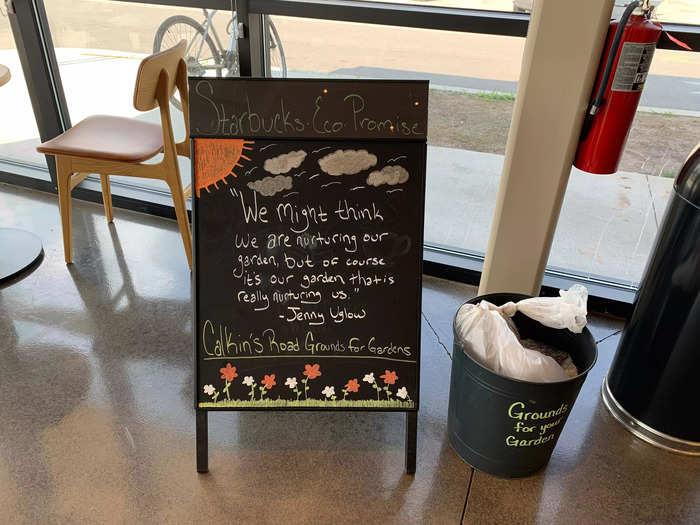 Starbucks Eco Promise
"We Might think
we are nurturing our
garden, but of course
it's our garden that is
really nurturing us."
- Jenny Uglow
Calkin's Road Grounds for Gardens
Grounds
for your
Garden